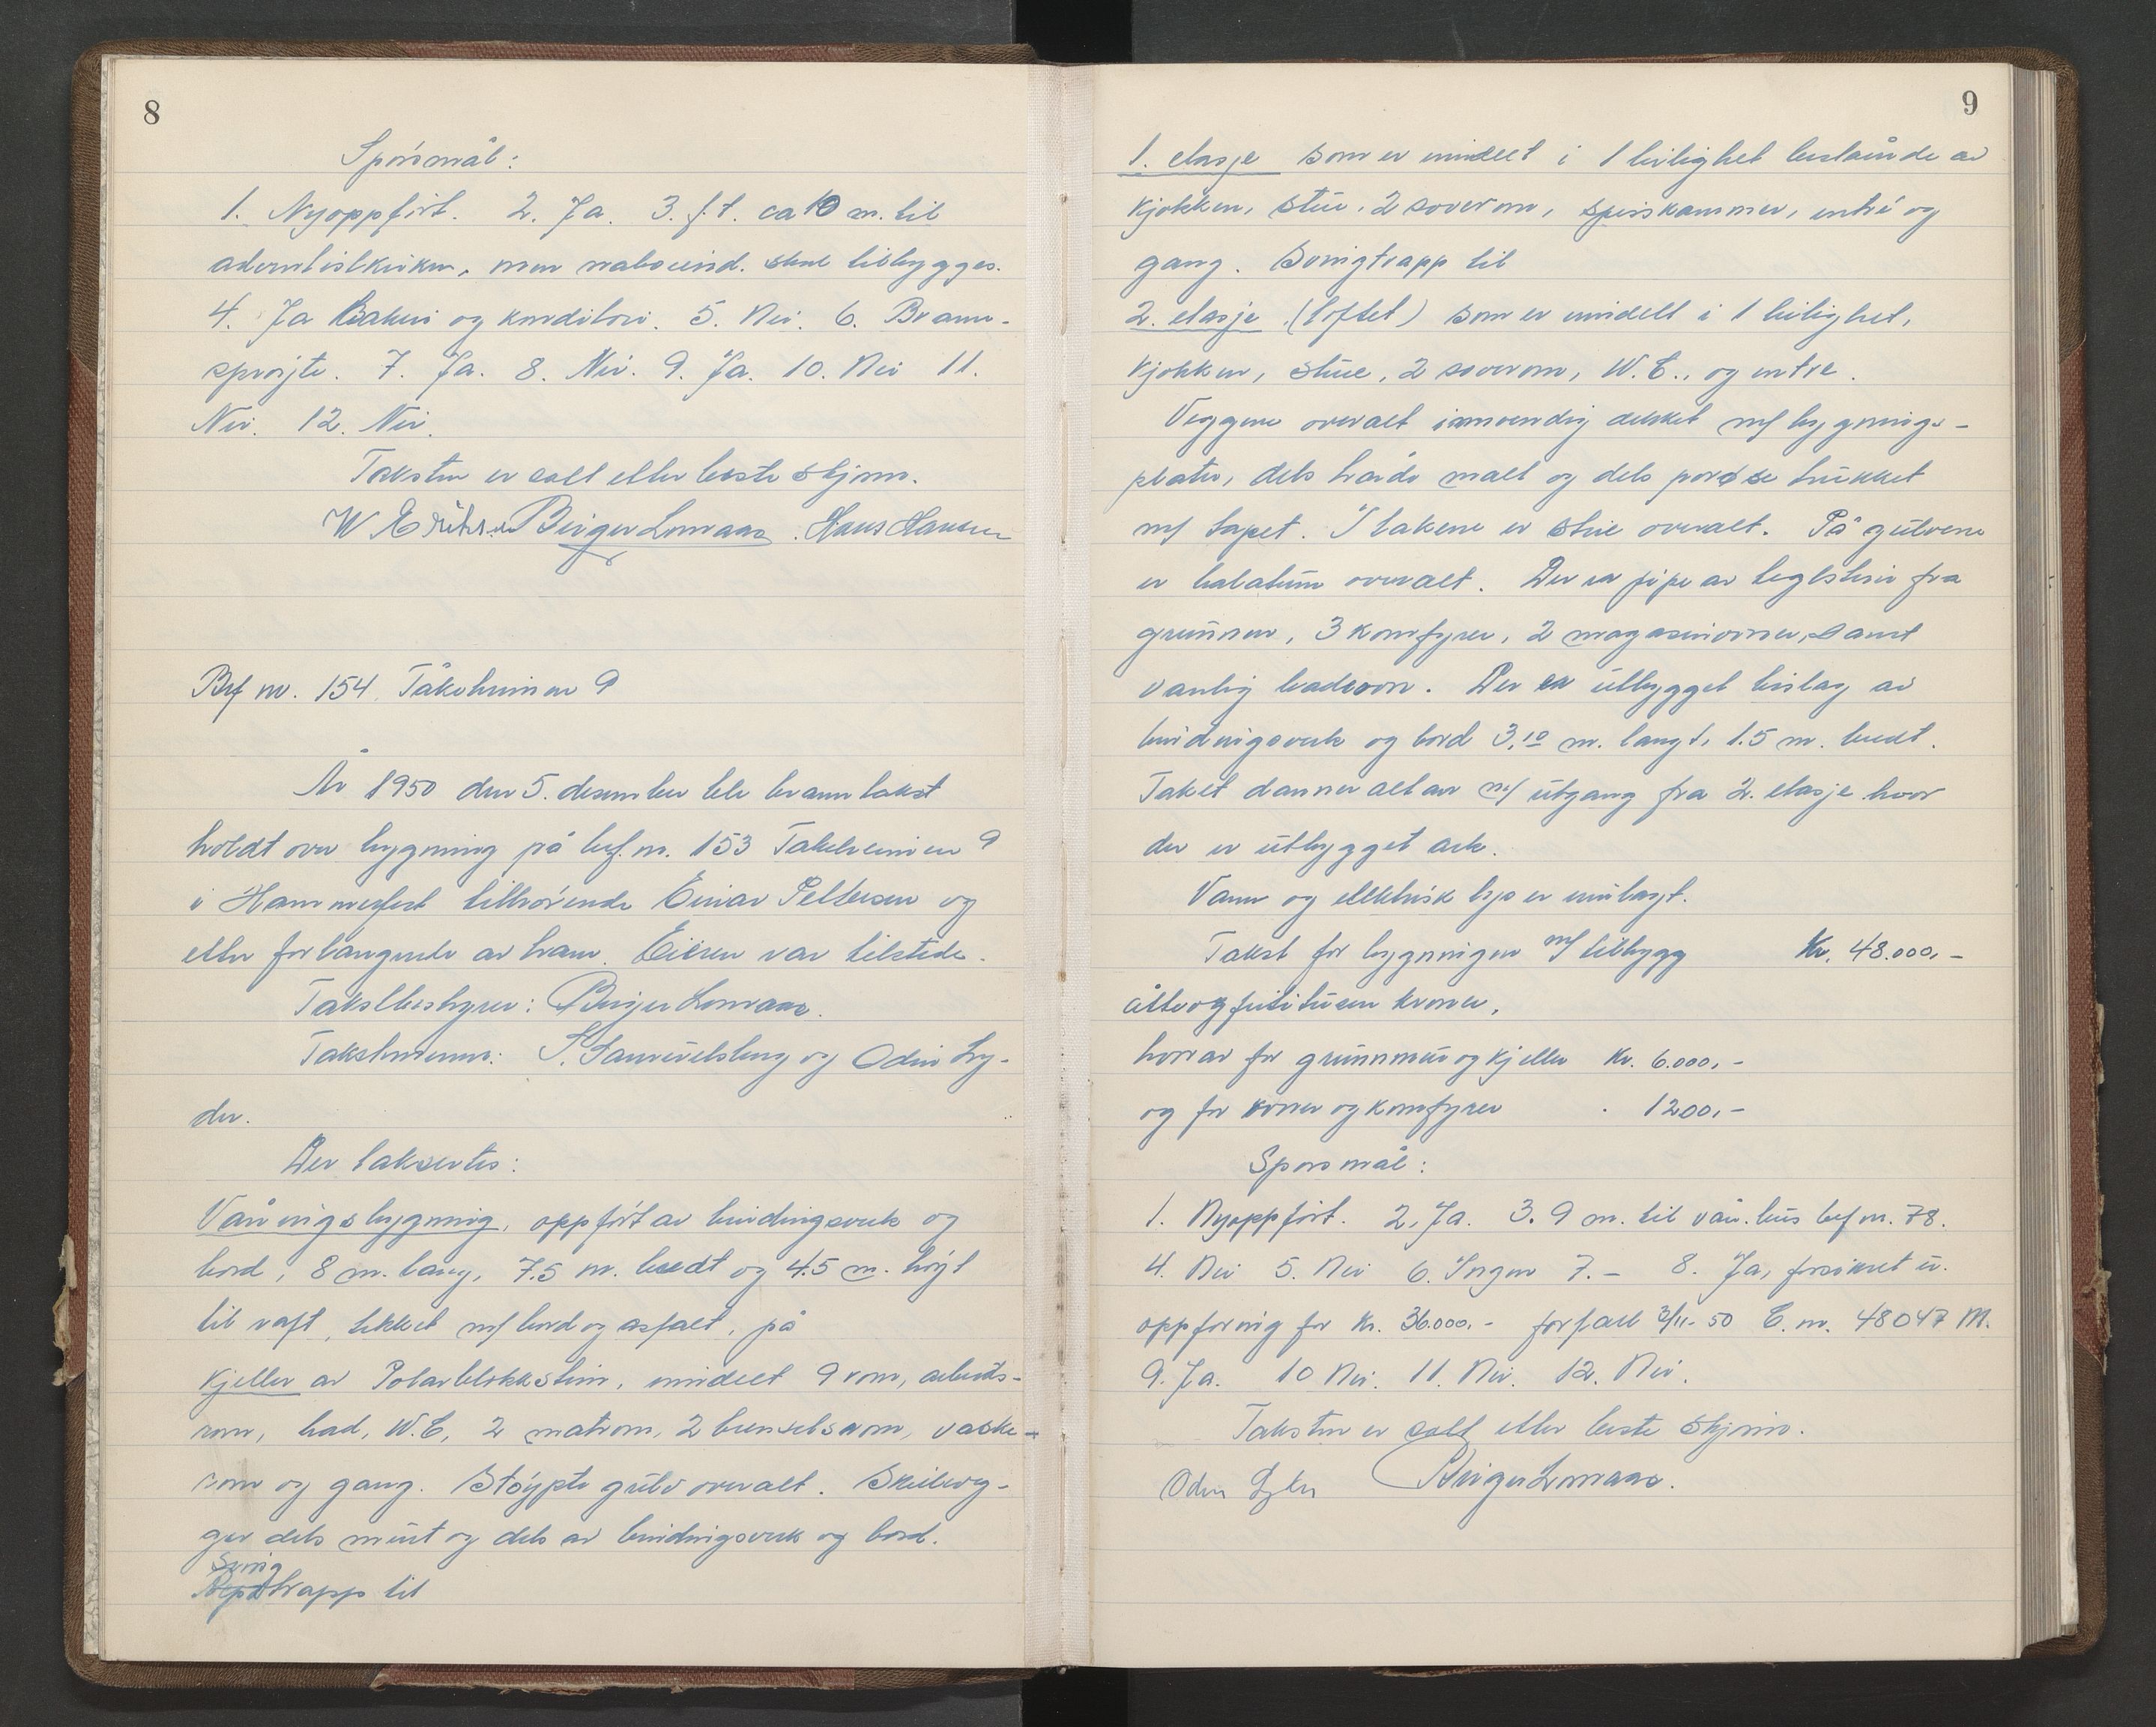 8
Spørsmål:
1. Nyoppført. 2. Ja. 3. f.t. ca 10 m. til
adventistkirken, men naboeiend. skal tilbygges.
4. Ja Bakeri og konditori. 5. Nei. 6. Brann-
sprøjte. 7. Ja. 8. Nei. 9. Ja. 10. Nei 11.
Nei. 12. Nei.
Taksten er satt etter beste skjønn.
W Eriksen Birger Lonvaas. Hans Hansen
Bf nr. 154. Tåkeheimen 9
År 1950 den 5. desember ble branntakst
holdt over bygning på bf. nr. 153 Tåkeheimen 9
i Hammerfest tilhørende Einar Pettersen og
etter forlangende av ham. Eieren var tilstede.
Takstbestyrer: Birger Lonvaas.
Takstmenn: og Odin Ly-
der.
Der taksertes:
Våningsbygning, oppført av bindingsverk og
bord, 8 m. lang, 7.5 m. bredt og 4.5 m. høyt
til raft, tekket m/ bord og asfalt, på
Kjeller av Polarblokkstein, inndelt 9 rom, arbeids-
rom, bad, W.C, 2 matrom, 2 brenselsrom, vaske-
rom og gang. Støypte gulv overalt. Skilleveg-
ger dels murt og dels av bindingsverk og bord.
Sving
trapp til
9
1. etasje som er inndelt i 1 leilighet bestående av
kjøkken, stue, 2 soverom, spiskammer, entré og
gang. Svingtrapp til
2. etasje (loftet) som er inndelt i 1 leilighet,
kjøkken, stue, 2 soverom, W.C., og entre.
Veggene overalt innvendig dekket m/ bygnings-
plater, dels hårde malt og dels porøse trukket
m/ tapet. I takene er stue overalt. På gulvene
er balatum overalt. Der er pipe av teglstein fra
grunnen, 3 komfyrer, 2 magasinovner, samt
vanlig badeovn. Der er utbygget bislag av
bindningsverk og bord 3,10 m. langt, 1.5 m. bredt.
Taket danner altan m/ utgang fra 2. etasje hvor
der er utbygget ark.
Vann og elektrisk lys er innlagt.
Takst for bygningen m/ tilbygg Kr. 48.000,-
åtteogførtitusen kroner,
hvorav for grunnmur og kjeller Kr. 6.000,-
og for ovner og komfyrer . 1200,-
Spørsmål:
1. Nyoppført. 2. Ja. 3. 9 m. til vån. hus bf nr. 78.
4. Nei 5. Nei 6. Ingen 7. - 8. Ja, forsikret u.
oppføring for Kr. 36.000,- forfall 3/11-50 C. nr. 48047 M.
9. Ja. 10 Nei. 11. Nei. 12. Nei.
Taksten er satt etter beste skjønn.
Odin Lyder Birger Lonvaas.